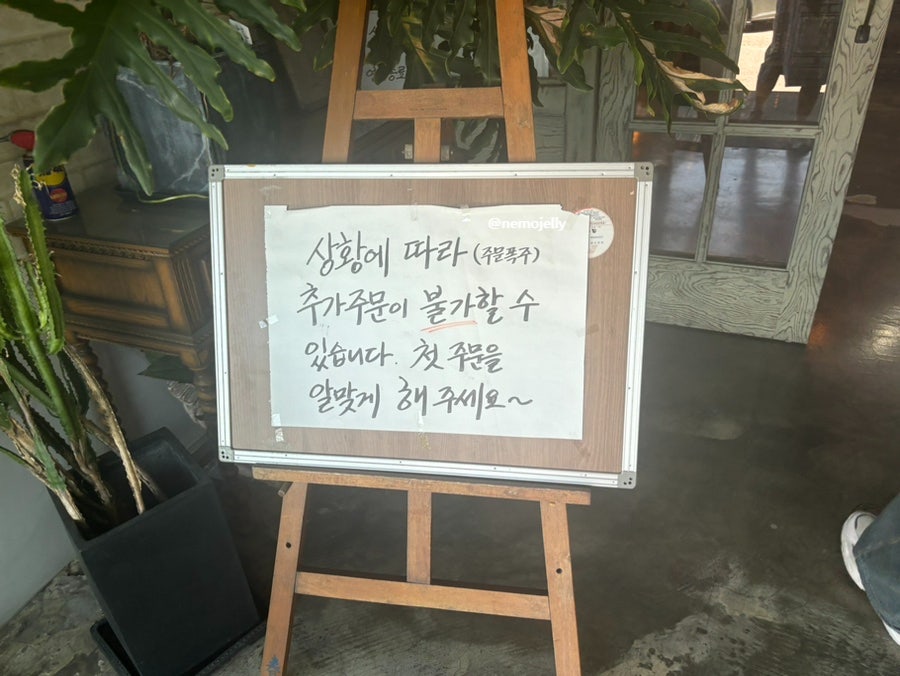 @nemojelly
상황에 따라 (주문폭주)
추가주문이 불가할 수
있습니다. 첫 주문을
알맞게 해 주세요~